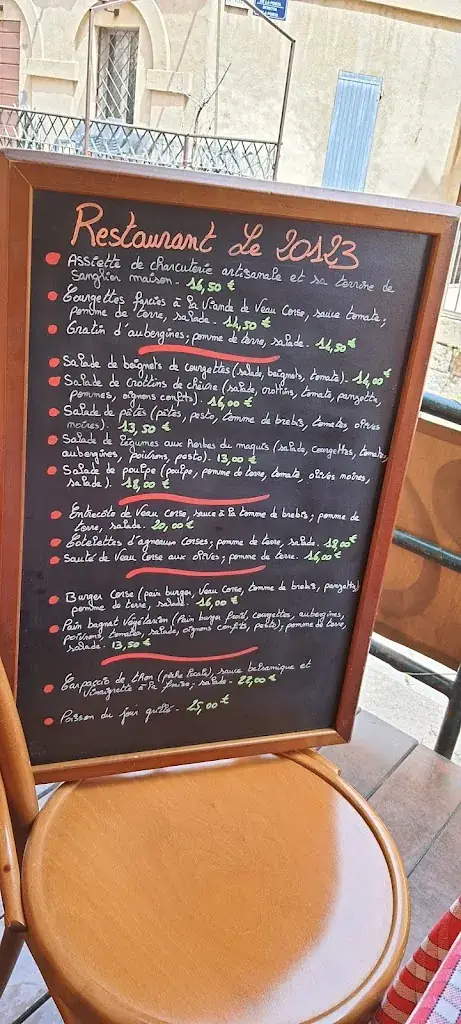 Restaurant Le 20123
Assiette de charcuterie artisanale et sa terrine de
Sanglier maison - 16,50 €
Courgettes farcies à la Viande de Veau Corse, sauce tomate;
pomme de terre, salade - 14,50 €
Gratin d'aubergines; pomme de terre, salade - 14,50 €
Salade de beignets de courgettes (salade, beignets, tomate) - 14,00 €
Salade de Crottins de chèvre (salade, crottins, tomate, panzetta,
pommes, oignons confits). 16,00 €
Salade de pâtes (pâtes, pesto, tomme de brebis, tomates, olives
noires). 13,50 €
Salade de légumes aux herbes du maquis (salade, courgettes, tomate,
aubergines, poivrons, pesto). 13,00 €
Salade de poulpe (poulpe, pomme de terre, tomate, olives noires,
salade). 18,00 €
Entrecôte de Veau Corse, sauce à la tomme de brebis; pomme de
terre, salade. 20,00 €
Côtelettes d'agneaux Corses; pomme de terre, salade. 19,00 €
Sauté de Veau Corse aux olives; pomme de terre. 16,00 €
Burger Corse (pain burger, Veau Corse, tomme de brebis, panzetta)
pomme de terre, salade. 16,00 €
Pain bagnat Végétarien (Pain burger, courgettes, aubergines,
poivrons, tomates, salade, oignons confits, pesto); pomme de terre,
salade - 13,50 €
Carpaccio de thon (pêche locale), sauce balsamique et
Vinaigrette à la, salade - 22,00 €
Poisson du jour grillé - 25,00 €